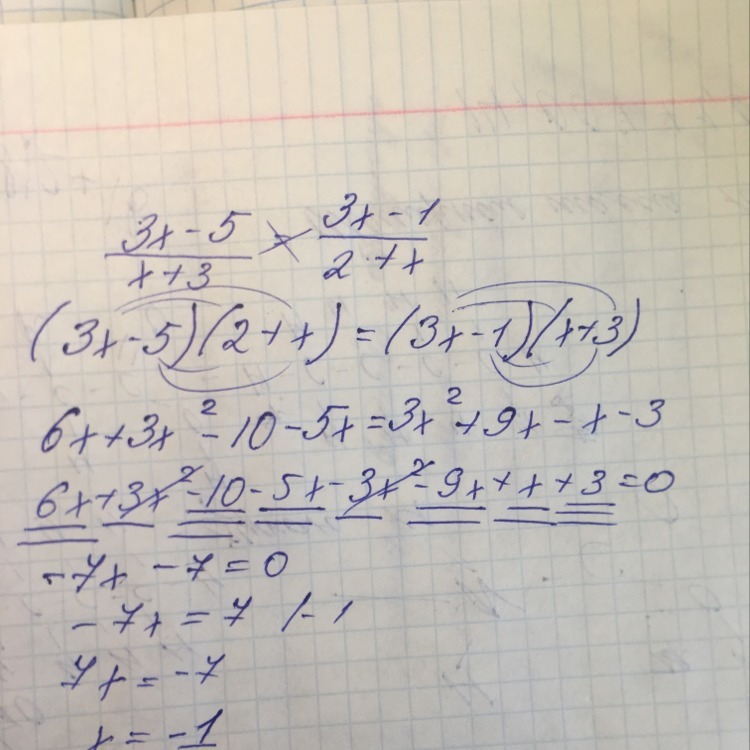 3x-5 / x+3 = 3x-1 / 2+x
(3x-5)(2+x)=(3x-1)(x+3)
6x+3x²-10-5x=3x²+9x-x-3
6x+3x²-10-5x-3x²-9x+x+3=0
-7x-7=0
-7x=7 /-1
7x=-7
x=-1